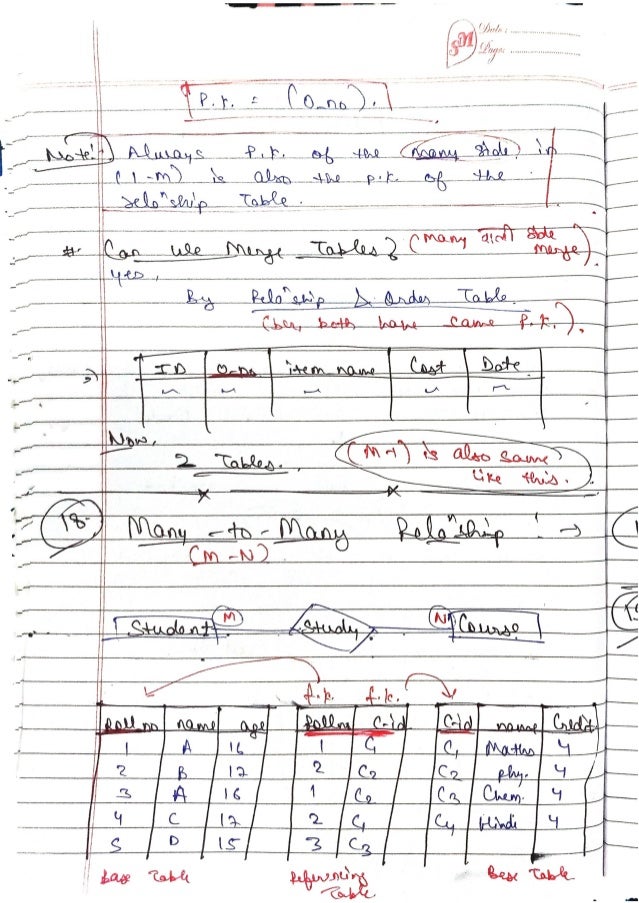 SM
Date :
Page :
P.K. = (O_no).
Note:- Always P.K. of the many side in
(1-M) is also the P.K. of the
relaⁿship Table.
# Can we Merge Tables? (Many वाली side merge)
yes,
By Relaⁿship & Order Table.
(bcz, both have same P.K.).
ID O-no item name Cost Date
Now,
2 Tables. (M-1) is also same
like this.
18. Many-to-Many Relaⁿship :→
(M-N)
Student M Study N Course
f.k. f.k.
Roll no name age Rollno C-id C-id name Credit
1 A 16 1 C1 C1 Maths 4
2 B 17 2 C2 C2 Phy. 4
3 A 16 1 C2 C3 Chem. 4
4 C 17 2 C1 C4 Hindi 4
5 D 15 3 C3
Base Table Referencing Table Base Table